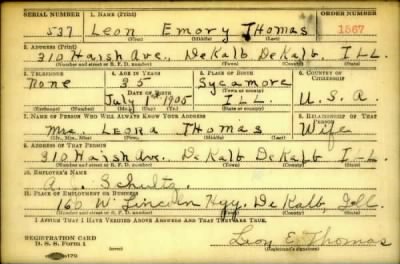 SERIAL NUMBER 1. NAME (Print) ORDER NUMBER
537 Leon Emory Thomas 1567
(First) (Middle) (Last)
2. ADDRESS (Print)
310 Haish Ave., DeKalb DeKalb ILL.
(Number and street or R. F. D. number) (Town) (County) (State)
3. TELEPHONE 4. AGE IN YEARS 5. PLACE OF BIRTH 6. COUNTRY OF CITIZENSHIP
None 35 Sycamore
DATE OF BIRTH (Town or county)
July 1905 ILL. U.S.A.
(Exchange) (Number) (Mo.) (Day) (Yr.) (State or country)
7. NAME OF PERSON WHO WILL ALWAYS KNOW YOUR ADDRESS 8. RELATIONSHIP OF THAT PERSON
Mrs. Leora Thomas Wife
(Mr., Mrs., Miss) (First) (Middle) (Last)
9. ADDRESS OF THAT PERSON
310 Haish Ave., DeKalb DeKalb ILL
(Number and street or R. F. D. number) (Town) (County) (State)
10. EMPLOYER'S NAME
Schultz
11. PLACE OF EMPLOYMENT OR BUSINESS
160 W. Lincoln Hgy. DeKalb, Ill.
(Number and street or R. F. D. number) (Town) (County) (State)
I AFFIRM THAT I HAVE VERIFIED ABOVE ANSWERS AND THAT THEY ARE TRUE.
REGISTRATION CARD
D. S. S. Form 1 Leon E. Thomas